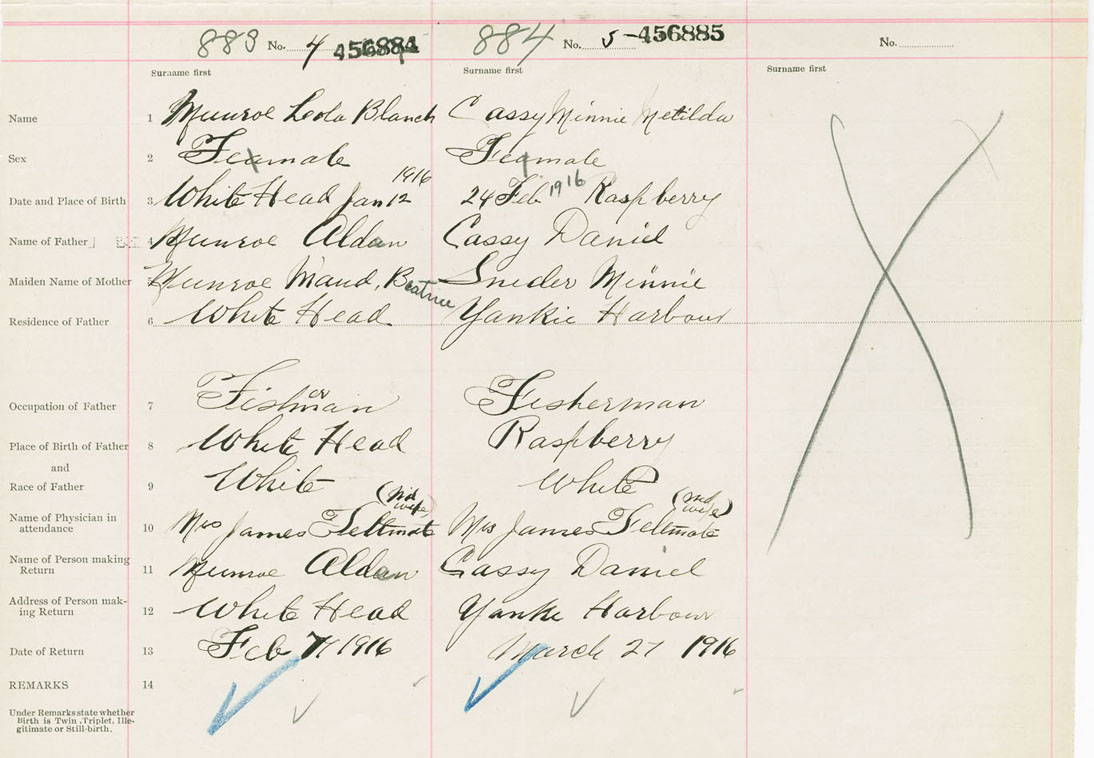 883 No. 4 456884 884 No. 5 -456885 No.
Surname first Surname first Surname first
Name 1 Munroe Leola Blanch Cassy Minnie Metilda
Sex 2 Feamale Feamale
1916
Date and Place of Birth 3 White Head Jan 12 24 Feb 1916 Raspberry
Name of Father 4 Munroe Aldan Cassy Daniel
Maiden Name of Mother 5 Munroe Maud, Beatrice Snider Minnie
Residence of Father 6 White Head Yankie Harbour
Occupation of Father 7 Fishman er Fisherman
Place of Birth of Father 8 White Head Raspberry
and
Race of Father 9 White White
(Mid wife) (mid wife)
Name of Physician in
attendance 10 Mrs James Feltmate Mrs James Feltmate
Name of Person making
Return 11 Munroe Aldan Cassy Daniel
Address of Person mak-
ing Return 12 White Head Yankie Harbour
Date of Return 13 Feb 7 1916 March 27 1916
REMARKS 14
Under Remarks state whether
Birth is Twin, Triplet, Ille-
gitimate or Still-birth.